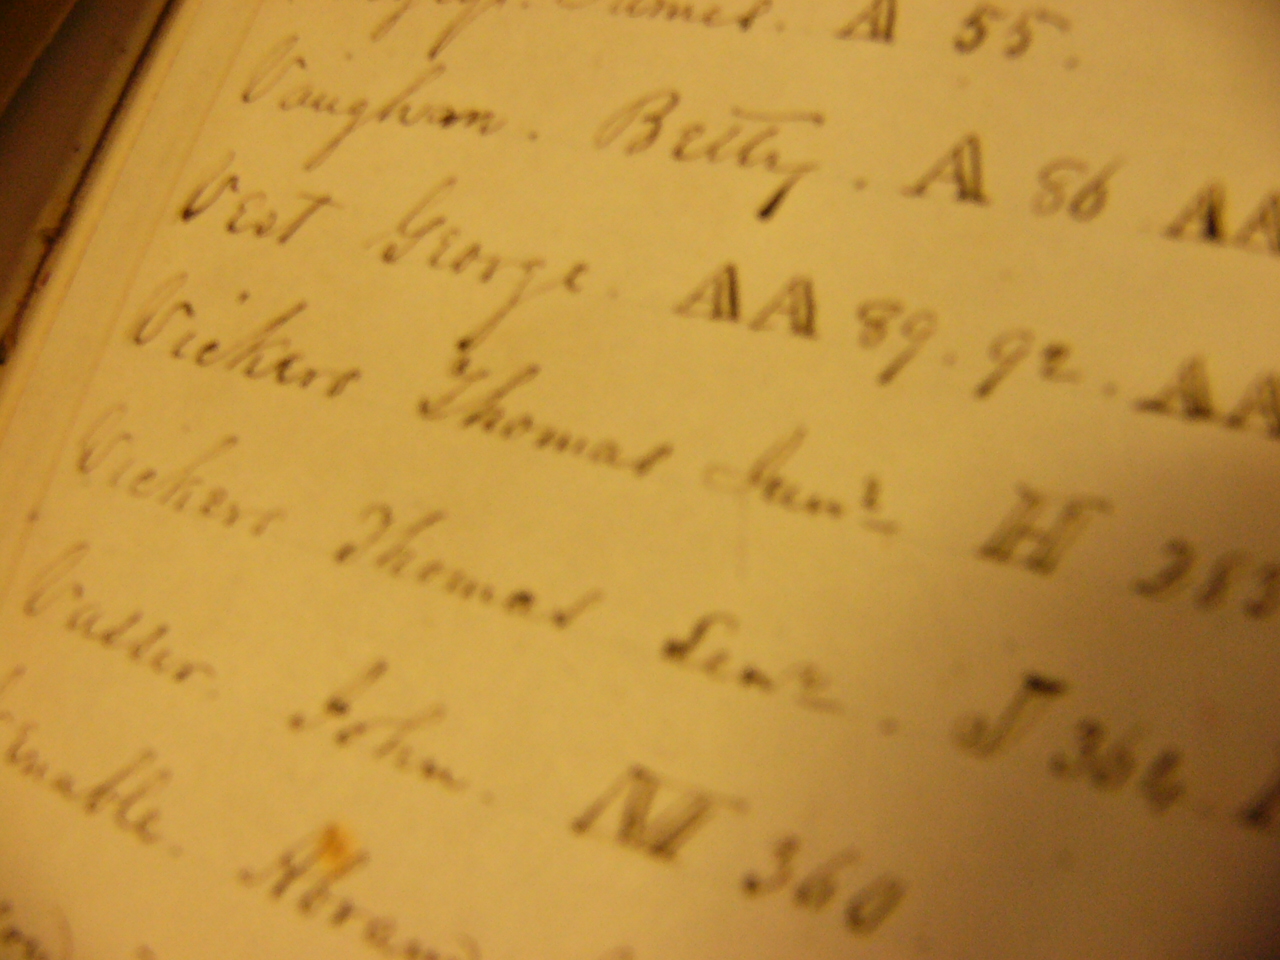 James. A 55.
Vaughan. Betty. A 86 AA
Vest George. AA 89. 92. AA
Vickers Thomas Junr H 383
Vickers Thomas Senr. J 364
Valler. John. M 360
Venable. Abram